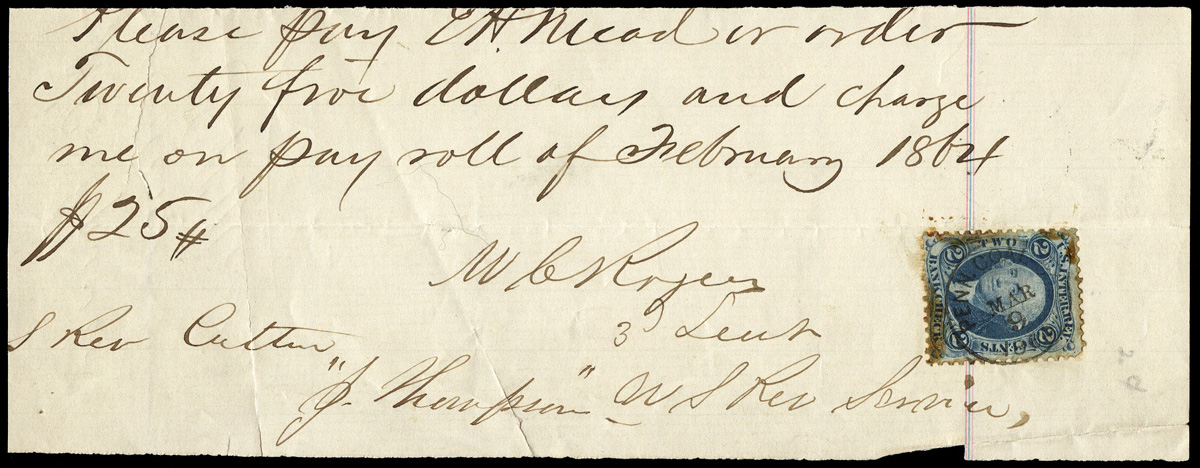 Please pay E H Mead or order
Twenty five dollars and charge
me on pay roll of February 1864
$25
W C Rogers
3d Lieut
S Rev Cutter
"J. Thompson" U S Rev Service,
TWO
2 2
BANK CHECK
U.S. INTER. REV.
PENN
MAR
9
2 CENTS 2